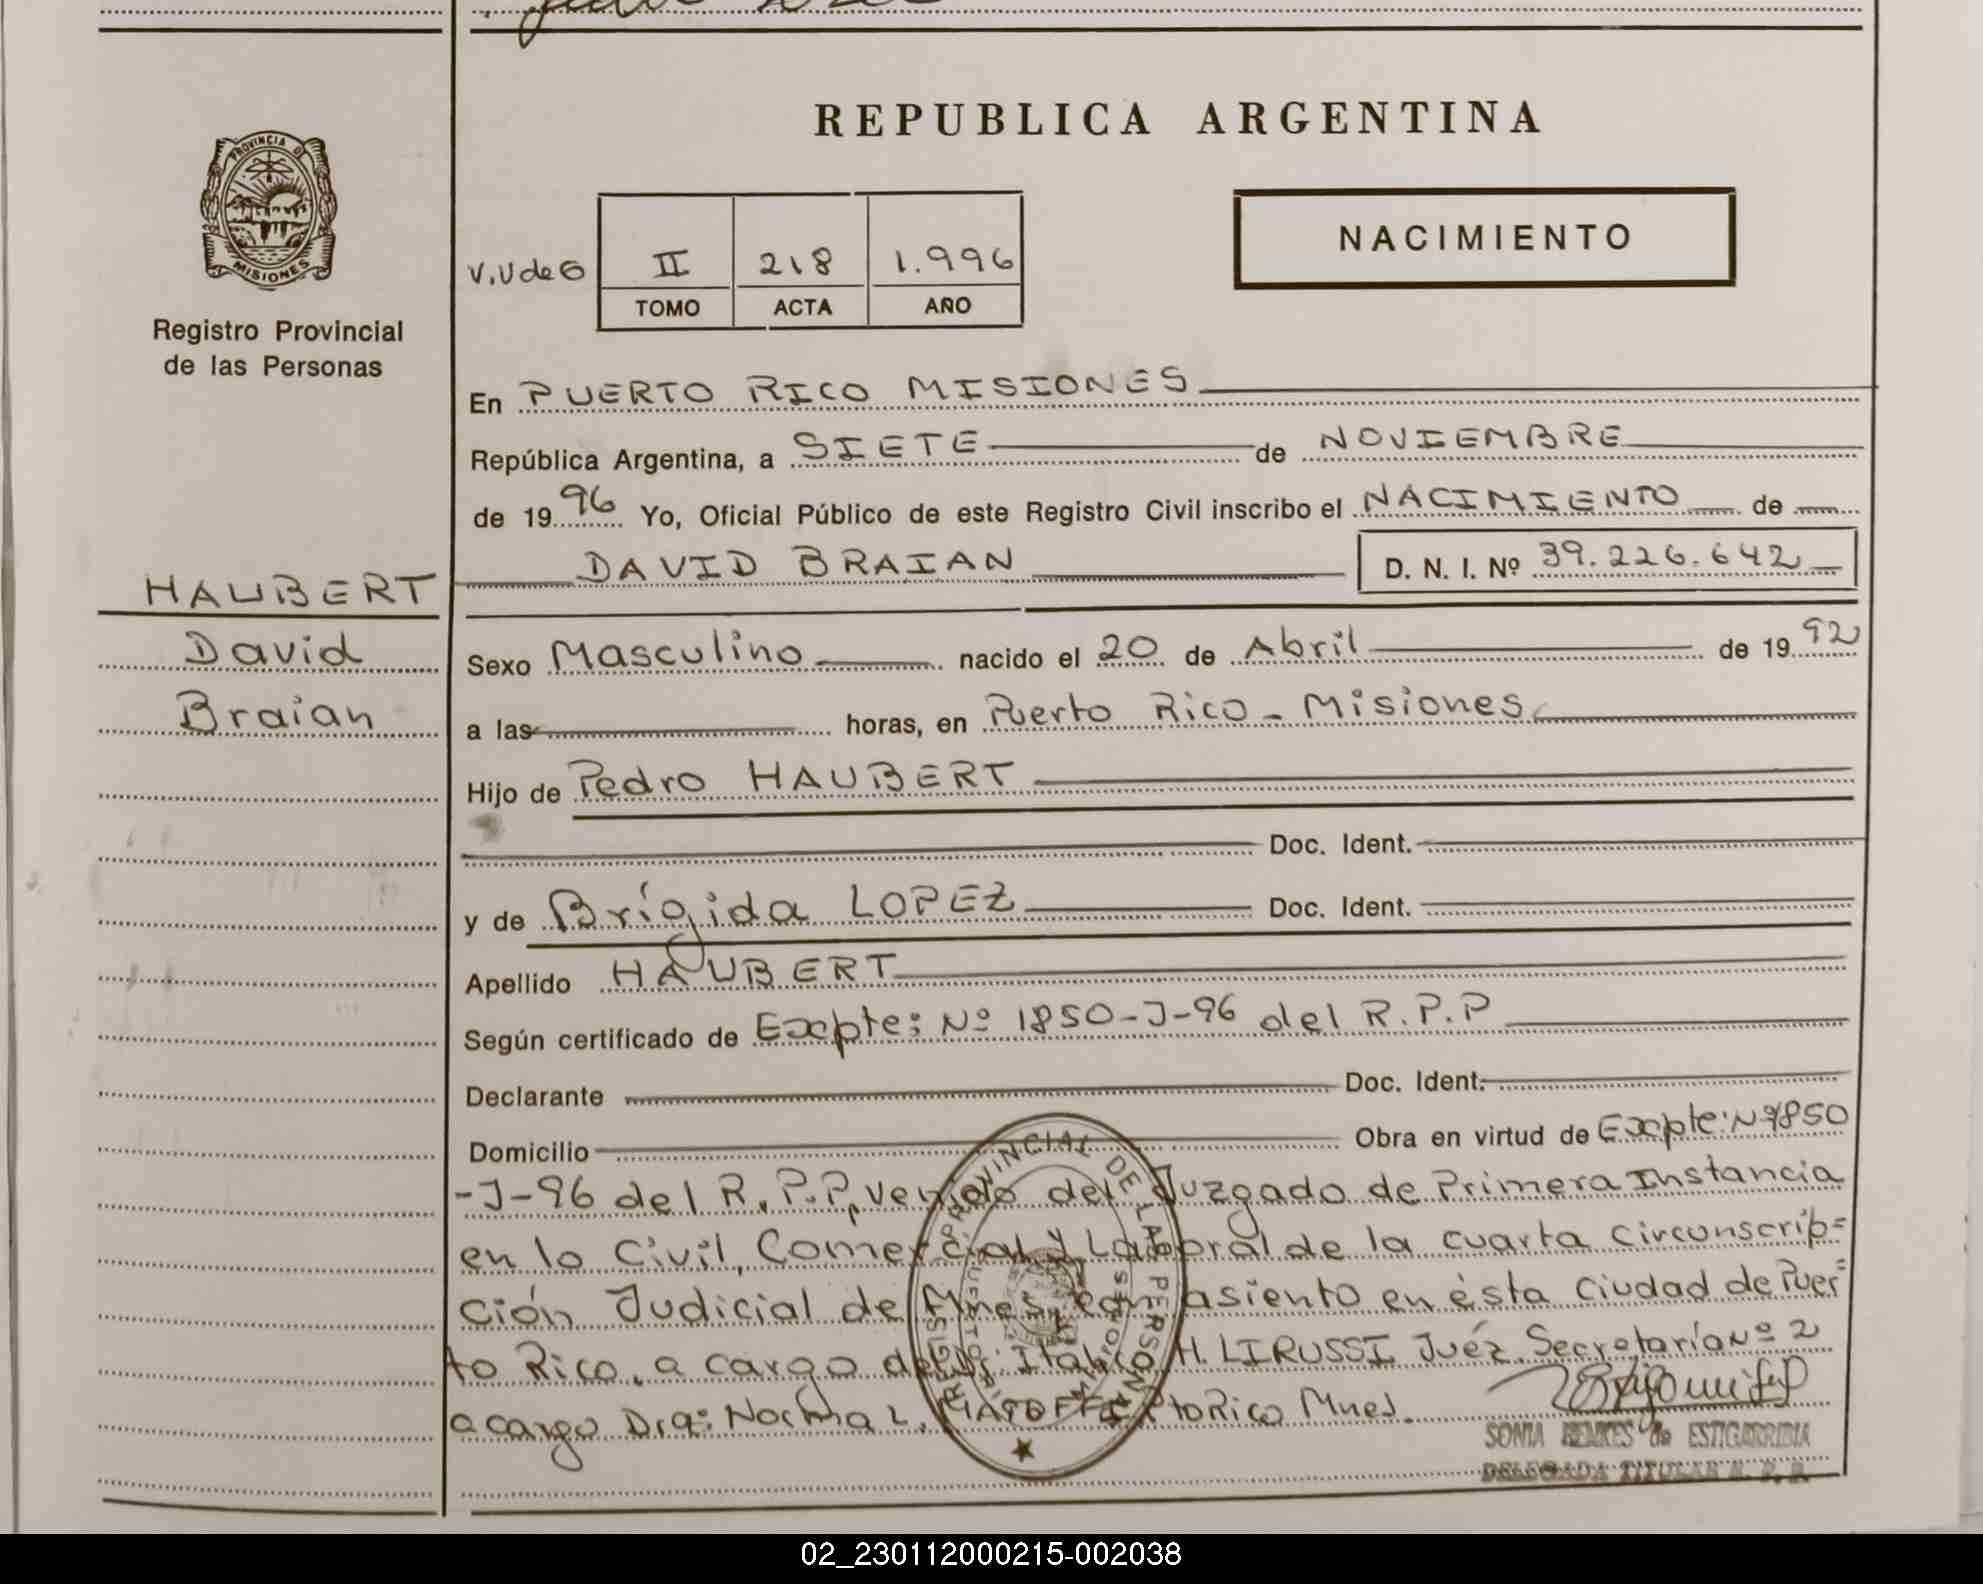 REPUBLICA ARGENTINA
PROVINCIA DE
MISIONES
Registro Provincial
de las Personas
NACIMIENTO
V.V de G II 218 1.996
TOMO ACTA AÑO
En PUERTO RICO MISIONES
República Argentina, a SIETE de NOVIEMBRE
de 1996 Yo, Oficial Público de este Registro Civil inscribo el NACIMIENTO de
DAVID BRAIAN D. N. I. Nº 39.226.642
HAUBERT
David
Braian
Sexo Masculino nacido el 20 de Abril de 1992
a las horas, en Puerto Rico - Misiones
Hijo de Pedro HAUBERT
Doc. Ident.
y de Brígida LOPEZ Doc. Ident.
Apellido HAUBERT
Según certificado de Excpte: Nº 1850-J-96 del R.P.P
Declarante Doc. Ident.
Domicilio Obra en virtud de Excpte: Nº1850
-J-96 del R.P.P, venido del Juzgado de Primera Instancia
en lo Civil, Comercial y Laboral de la cuarta circunscrip=
ción Judicial de Mnes, con asiento en ésta Ciudad de Puer=
to Rico, a cargo del Dr. Italo H. LIRUSSI Juéz. Secretaría Nº 2
a cargo Dra: Norma L. Pto Rico Mnes.
SONIA de ESTIGARRIBIA
DELEGADA TITULAR R. P. P.
02_230112000215-002038